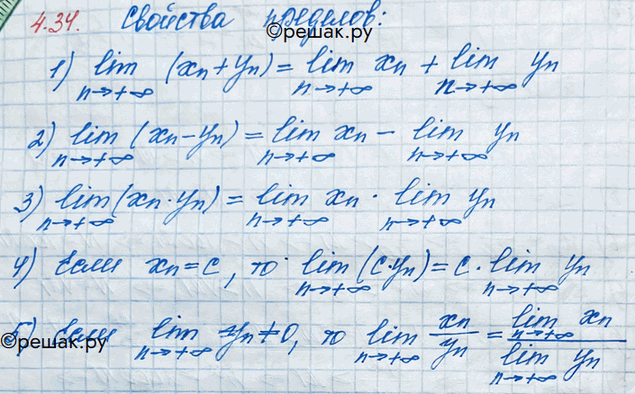 4.34. Свойства пределов:
©решак.ру
1) lim (xn + yn) = lim xn + lim yn
n→+∞ n→+∞ n→+∞
2) lim (xn - yn) = lim xn - lim yn
n→+∞ n→+∞ n→+∞
3) lim (xn · yn) = lim xn · lim yn
n→+∞ n→+∞ n→+∞
4) Если xn = c, то lim (c · yn) = c · lim yn
n→+∞ n→+∞
5) Если lim yn ≠ 0, то lim xn/yn = lim xn / lim yn
n→+∞ n→+∞ n→+∞ n→+∞
©решак.ру